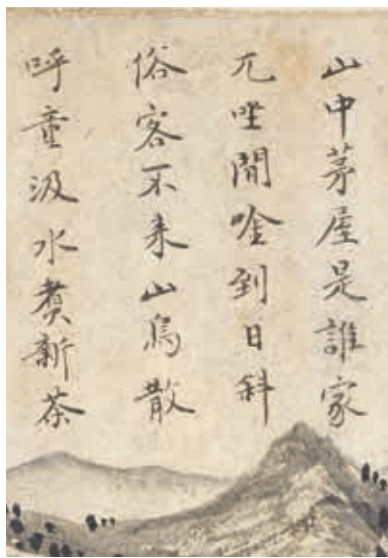 山中茅屋是誰家
兀坐閒唫到日斜
俗客不來山鳥散
呼童汲水煑新茶